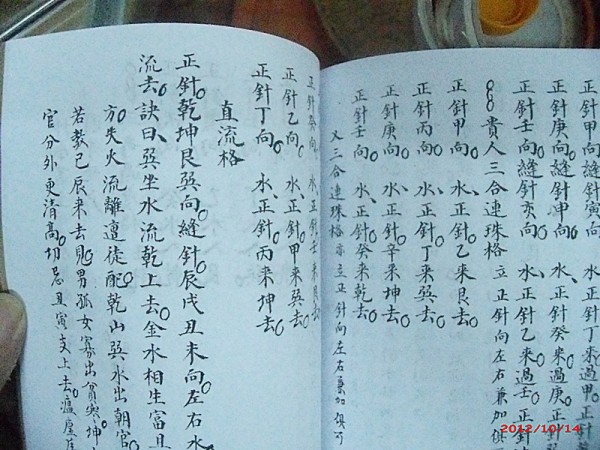 正針甲向縫針寅向
正針庚向縫針申向 水正針丁來過甲正針
正針壬向縫針亥向 水正針癸來過庚正針
水正針乙來過壬正針
貴人三合連珠格 立正針向左右兼加俱可
正針甲向 水正針乙來艮去
正針丙向 水正針丁來巽去
正針庚向 水正針辛來坤去
正針壬向 水正針癸來乾去
又三合連珠格亦立正針向左右兼加俱可
正針癸向 水正針壬來艮去
正針乙向 水正針甲來巽去
正針丁向 水正針丙來坤去
直流格
正針乾坤艮巽向縫針辰戌丑未向左右水
流去訣曰巽坐水流乾上去金水相生富且
方失火流離遭徒配乾山巽水出朝官
若教巳辰來去見男孤女寡出貧
官分外更清高切忌丑寅支上去瘟
2012/10/14